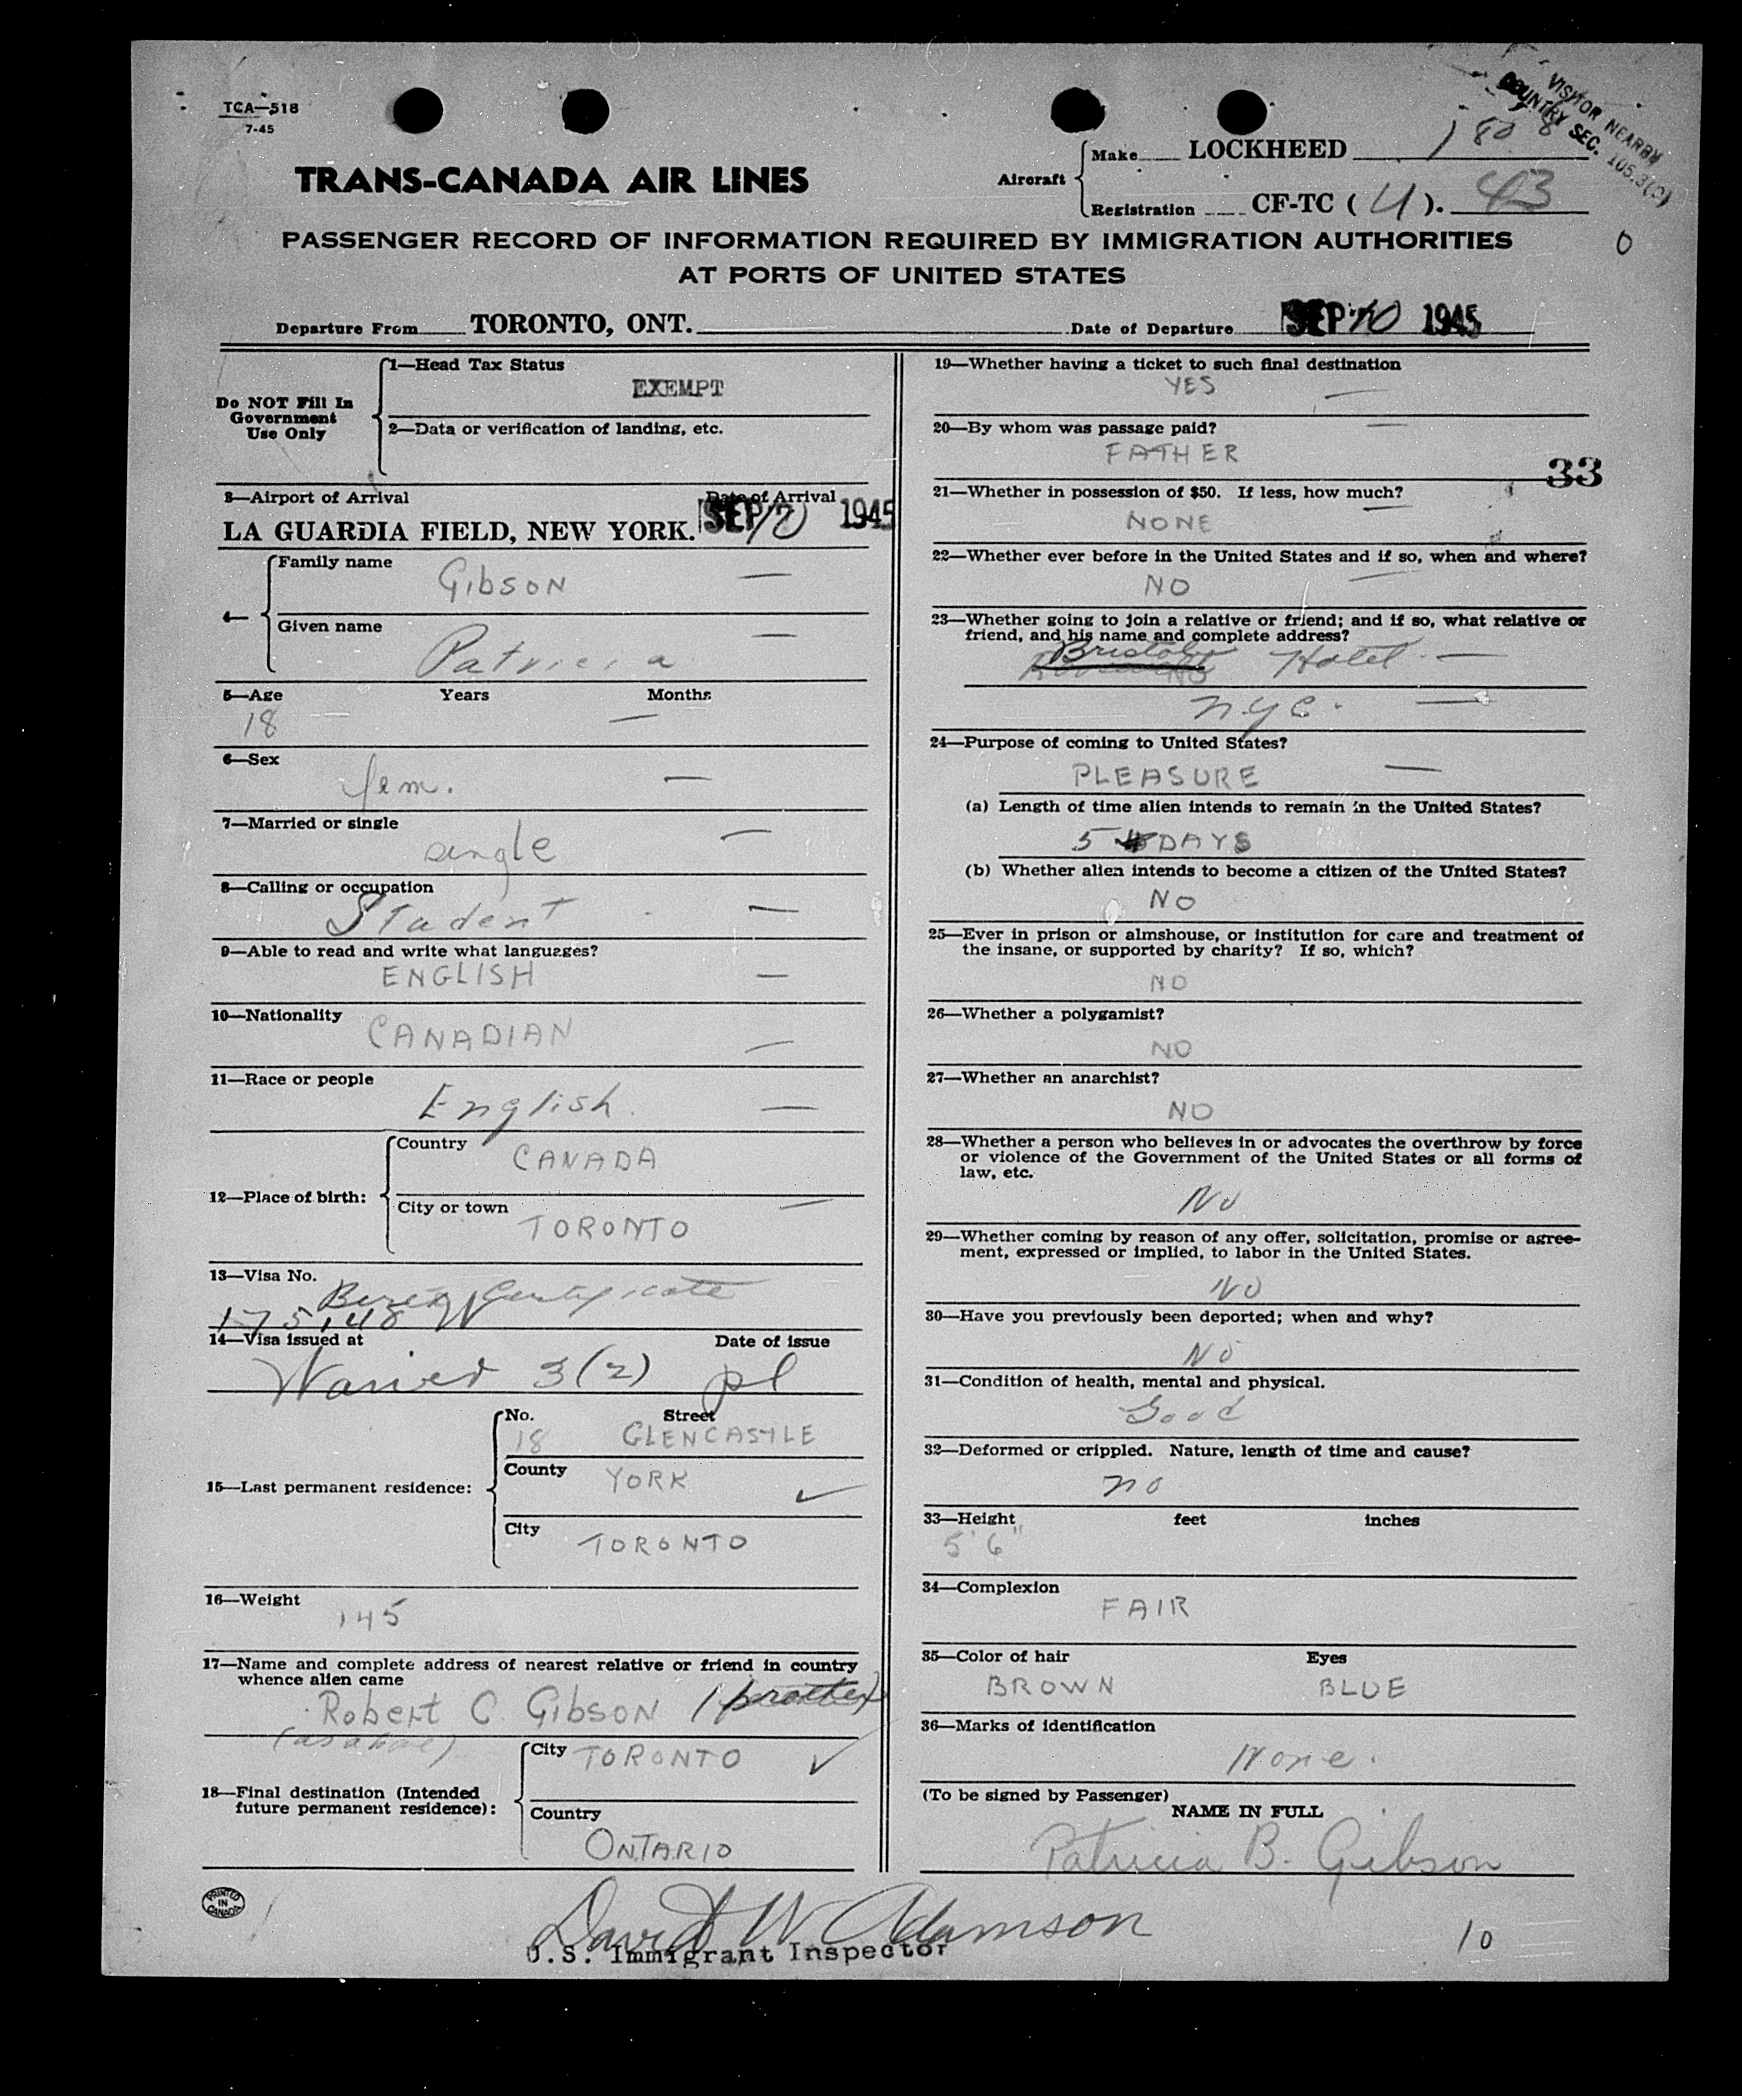 TCA—518
7-45
VISITOR NEARBY
COUNTRY SEC. 105.3(C)
TRANS-CANADA AIR LINES
Aircraft
Make LOCKHEED 180 8
Registration CF-TC (U). 43
PASSENGER RECORD OF INFORMATION REQUIRED BY IMMIGRATION AUTHORITIES
AT PORTS OF UNITED STATES
0
Departure From TORONTO, ONT. Date of Departure SEP 10 1945
Do NOT Fill In
Government
Use Only
1—Head Tax Status
EXEMPT
2—Data or verification of landing, etc.
3—Airport of Arrival Date of Arrival
LA GUARDIA FIELD, NEW YORK. SEP 10 1945
4—
Family name
Gibson
Given name
Patricia
5—Age Years Months
18
6—Sex
fem.
7—Married or single
single
8—Calling or occupation
Student
9—Able to read and write what languages?
ENGLISH
10—Nationality
CANADIAN
11—Race or people
English
12—Place of birth:
Country
CANADA
City or town
TORONTO
13—Visa No.
Certificate
175148
14—Visa issued at Date of issue
3(2)
15—Last permanent residence:
No. Street
18 GLENCASTLE
County YORK
City
TORONTO
16—Weight
145
17—Name and complete address of nearest relative or friend in country
whence alien came
Robert C. Gibson (brother)
(as above)
18—Final destination (Intended
future permanent residence):
City TORONTO
Country
ONTARIO
19—Whether having a ticket to such final destination
YES
20—By whom was passage paid?
FATHER
33
21—Whether in possession of $50. If less, how much?
NONE
22—Whether ever before in the United States and if so, when and where?
NO
23—Whether going to join a relative or friend; and if so, what relative or
friend, and his name and complete address?
Bristol Hotel
N.Y.C.
24—Purpose of coming to United States?
PLEASURE
(a) Length of time alien intends to remain in the United States?
5 DAYS
(b) Whether alien intends to become a citizen of the United States?
NO
25—Ever in prison or almshouse, or institution for care and treatment of
the insane, or supported by charity? If so, which?
NO
26—Whether a polygamist?
NO
27—Whether an anarchist?
NO
28—Whether a person who believes in or advocates the overthrow by force
or violence of the Government of the United States or all forms of
law, etc.
No
29—Whether coming by reason of any offer, solicitation, promise or agree-
ment, expressed or implied, to labor in the United States.
No
30—Have you previously been deported; when and why?
No
31—Condition of health, mental and physical.
Good
32—Deformed or crippled. Nature, length of time and cause?
no
33—Height feet inches
5' 6"
34—Complexion
FAIR
35—Color of hair Eyes
BROWN BLUE
36—Marks of identification
None.
(To be signed by Passenger)
NAME IN FULL
Patricia B. Gibson
PRINTED
IN
CANADA
David W Adamson
U.S. Immigrant Inspector
10